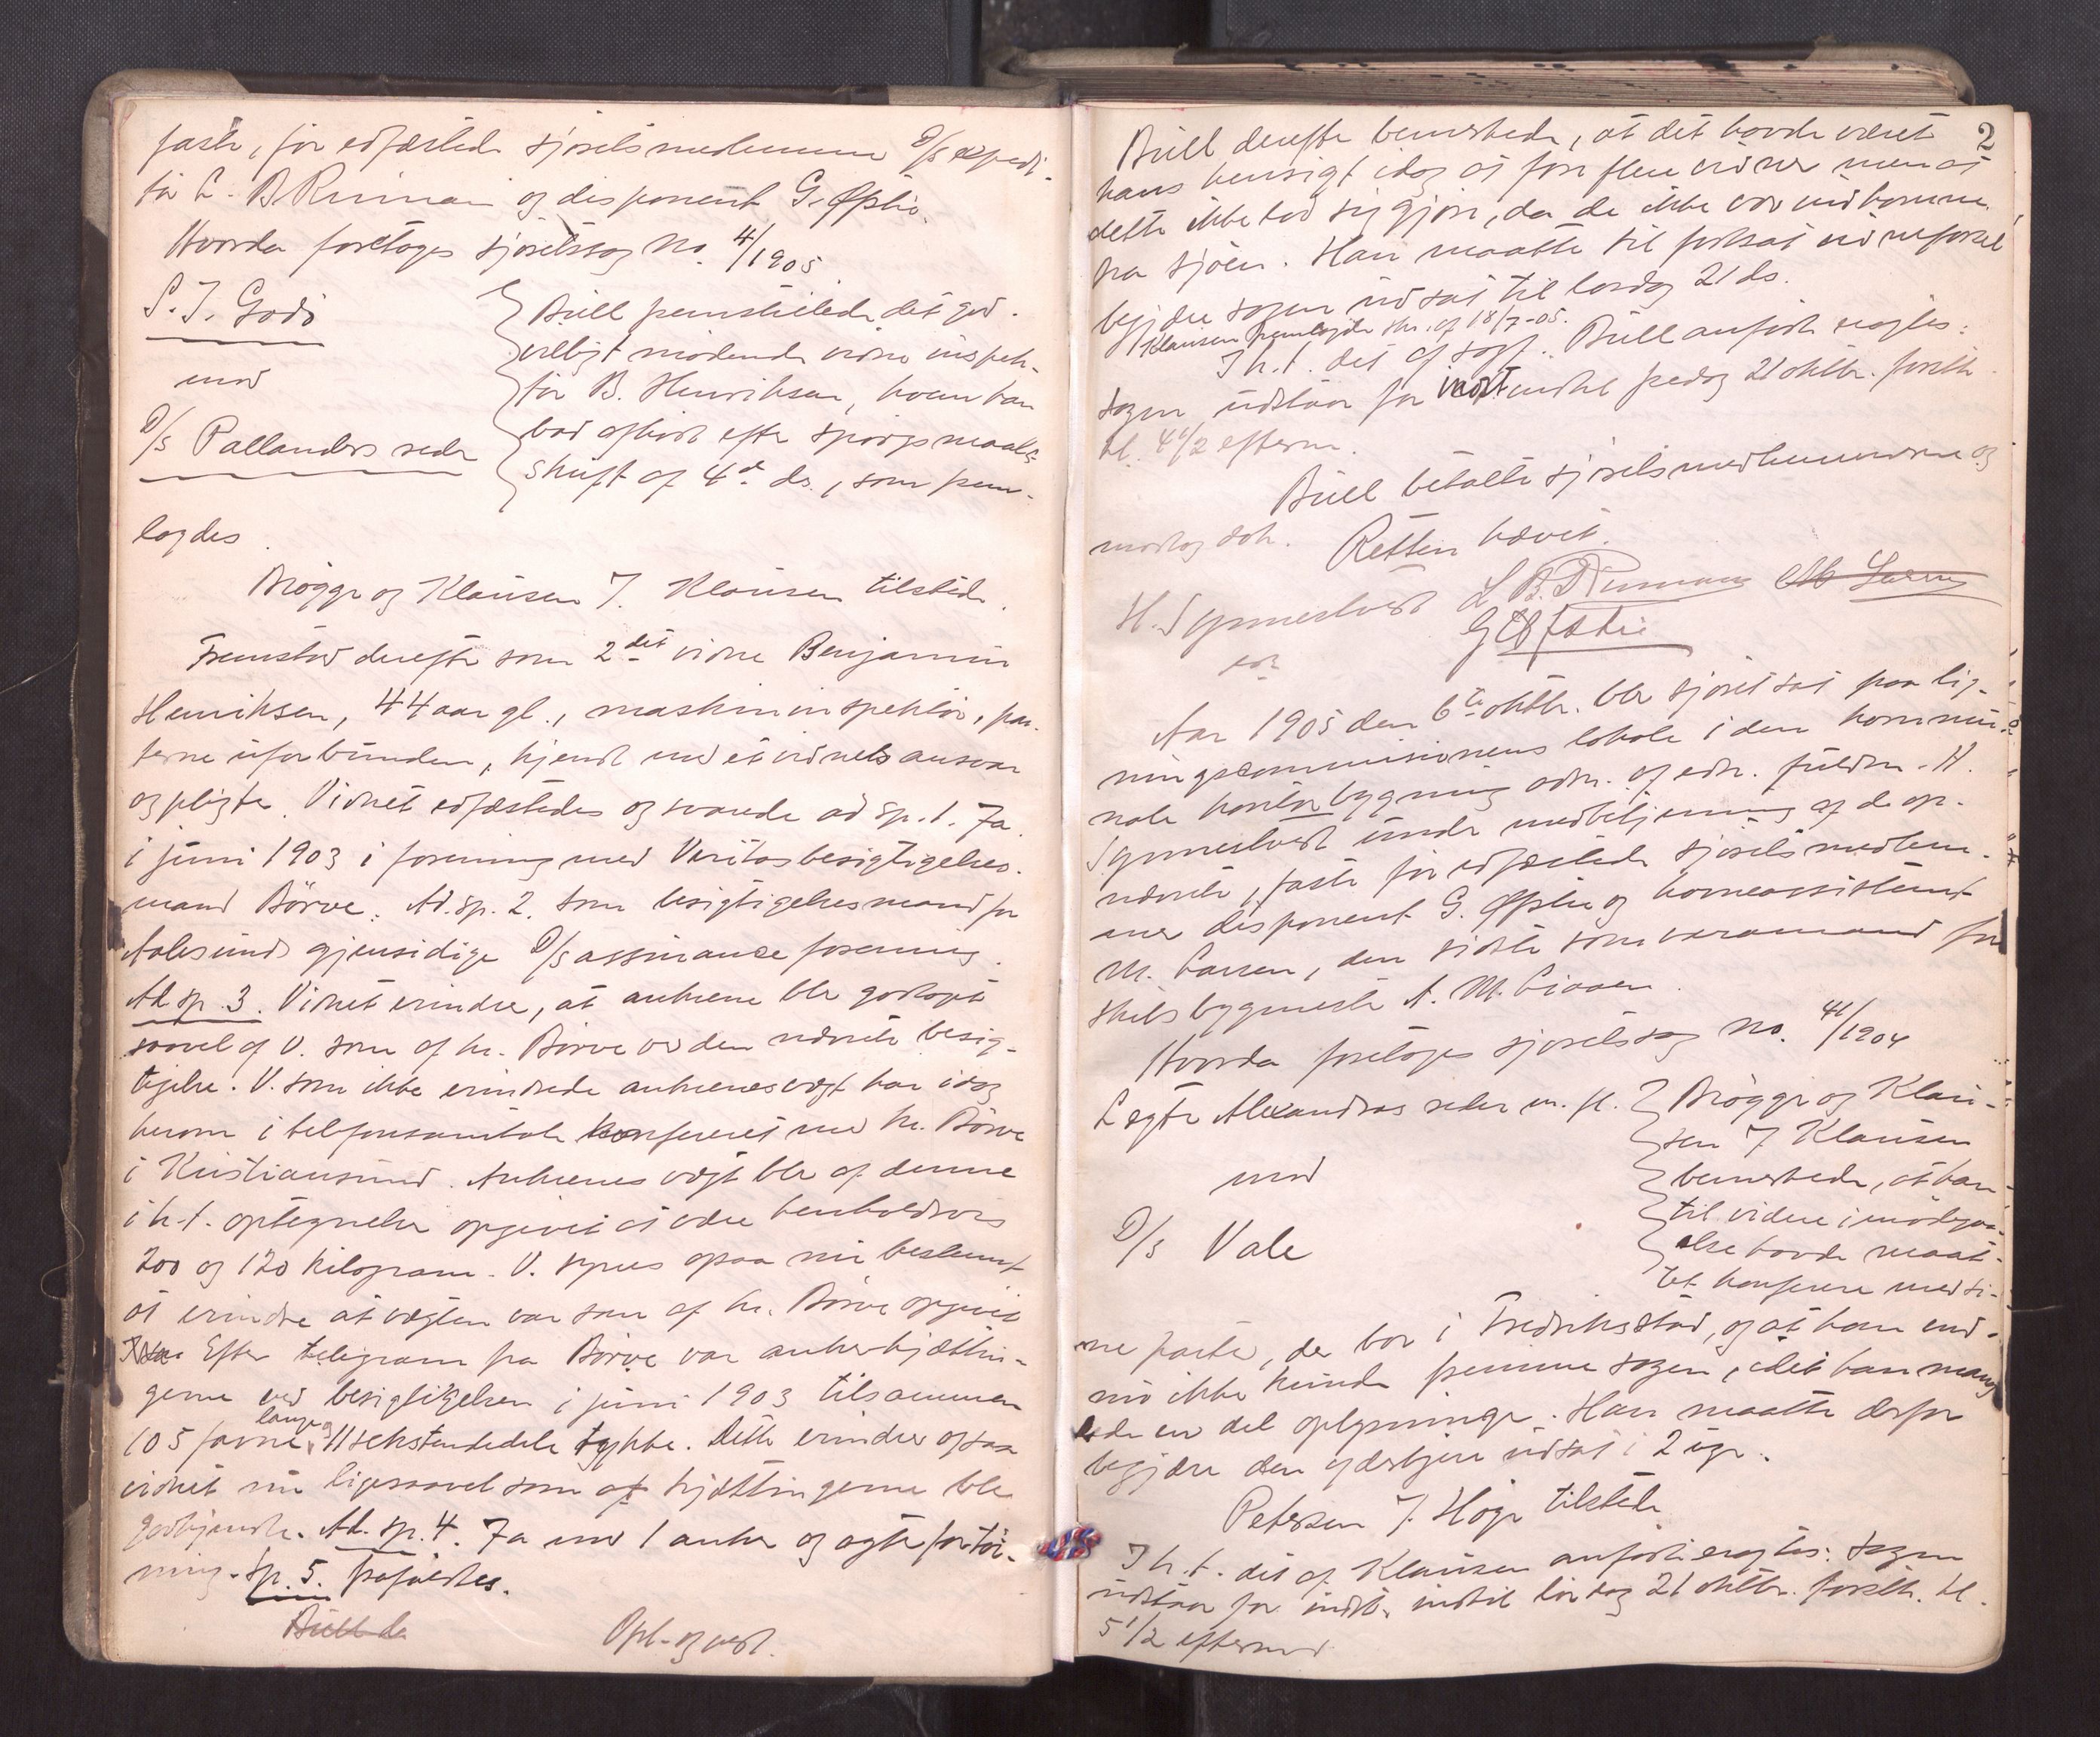 faste, før edfæstede sjøretsmedlemmer D/S expedi-
tør L. B. Rimman og disponent G. Ofstie.
Hvorda foretoges sjøretssag No. 4/1905
S. J. Godø
mod
D/S Pallanders reder
Bull fremstillede det god-
villigt mødende vidne inspek-
tør B. Henriksen, hvem han
bad afhørt efter spørgsmaals-
skrift af 4de ds., som frem-
lagdes.
Brøgger og Klausen J. Klausen tilstede.
Fremstod derefter som 2det vidne Benjamin
Henriksen, 44 aar gl., maskininspektør, par-
terne uforbunden, kjendt med et vidnets ansvar
og pligter. Vidnet edfæstedes og svarede ad sp. 1. Ja
i juni 1903 i forening med Veritasbesigtigelses-
mand Børve. Ad. sp. 2. Som besigtigelsesmand for
Aalesunds gjensidige D/S assuranceforening.
Ad sp. 3. Vidnet erindrer, at ankrene ble godtaget
saavel af V. som af hr. Børve ved den nævnte besig-
tigelse. V. som ikke erindrede ankrenes vægt har idag
herom i telefonsamtale konfereret med hr. Børve
i Kristiansund. Ankrenes vægt ble af denne
i h. t. optegnelser opgivet at være henholdsvis
200 og 120 kilogram. V. synes ogsaa nu bestemt
at erindre at vægten var som af hr. Børve opgivet
Efter telegram fra Børve var ankerkjættin-
gerne ved besigtigelsen i juni 1903 tilsammen
105 favne lange og 11 sekstendedele tykke. Dette erindrer ogsaa
vidnet nu ligesaavel som at kjættingerne ble
godkjendte. Ad. sp. 4. Ja med 1 anker og agterfortøi-
ning. Sp. 5. frafaldtes.
Bull de
Opl. og vedt.
2
Bull derefter bemerkede, at det havde været
hans hensigt idag at føre flere vidner men at
dette ikke lod sig gjøre, da de ikke var indkomne
fra sjøen. Han maatte til fortsat vidneførsel
begjære sagen udsat til lørdag 21 ds.
Klausen fremlagde skr. af 18/7-05.
I h. t. det af sagf. Bull anførte eragtes:
Sagen udstaar for indst. indtil fredag 21 oktbr. førstk.
kl. 4 1/2 efterm.
Bull betalte sjøretsmedlemmerne og
modtog dok. Retten hævet.
H. Synnestvedt L. B. Rimman M Larsen
G Ofstie
Aar 1905 den 6te oktbr. ble sjøret sat paa lig-
ningscommisionens lokale i den kommu-
nale kontorbygning adm. af edsv. fuldm. H.
Synnestvedt under medbetjening af de op-
nævnte, faste før edfæstede sjøretsmedlem-
mer disponent G. Ofstie og havneassistent
M. Larsen, den sidste som varamand for
skibsbygmester A. M. Liaaen.
Hvorda foretoges sjøretssag No. 41/1904
Lægter Alexandras reder m. fl.
mod
D/S Vale
Brøgger og Klau-
sen J. Klausen
bemerkede, at han
til videre imødegaa-
else havde maat-
tet konferere med si-
ne parter, der bor i Fredriksstad, og at han end-
nu ikke kunde fremme sagen, idet han mang-
lede en del oplysninger. Han maatte derfor
begjære den yderligere udsat i 2 uger.
Petersen J. Høgr tilstede
I h. t. det af Klausen anførte eragtes: Sagen
udstaar for indst. indtil lørdag 21 oktbr. førstk. kl.
5 1/2 eftermd